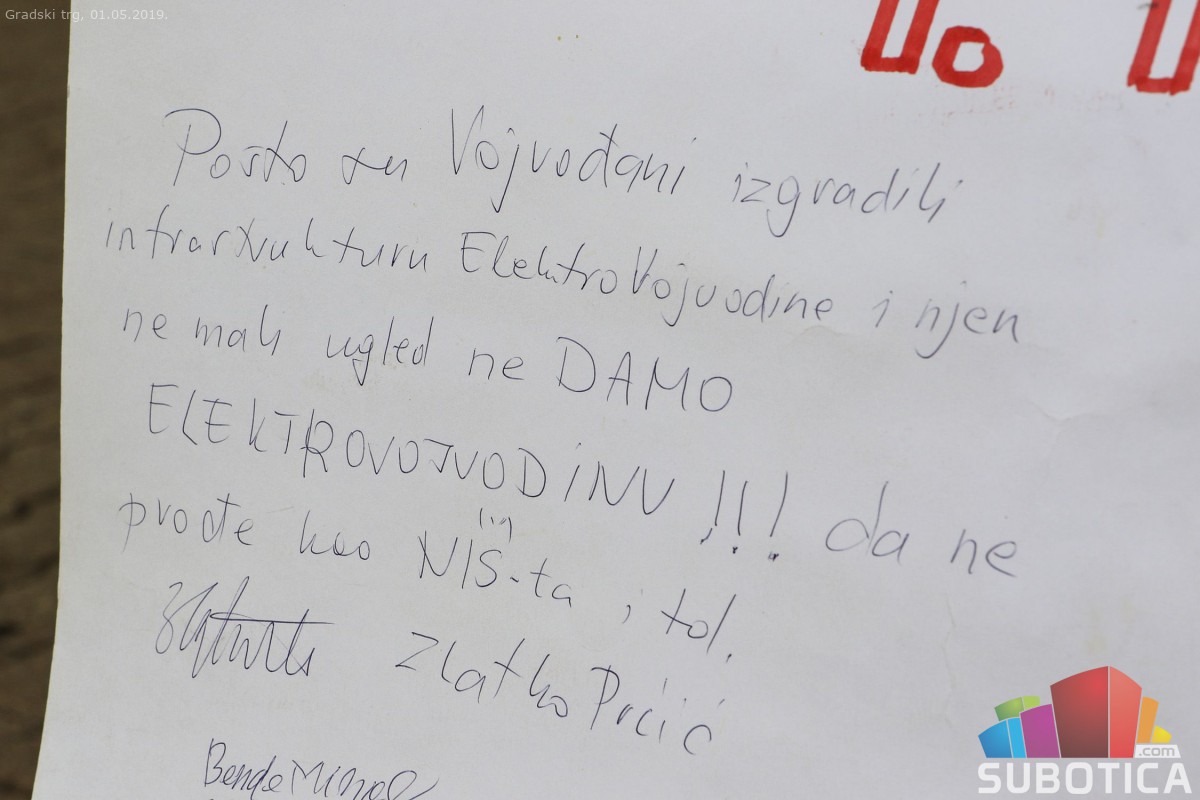 Gradski trg, 01.05.2019.
Pošto su Vojvođani izgradili
infrarstrukturu ElektroVojvodine i njen
ne mali ugled ne DAMO
ELEKTROVOJVODINU !!! da ne
prođe kao NIŠ-ta, tol.
Zlatko Prćić
Bende
SUBOTICA.com